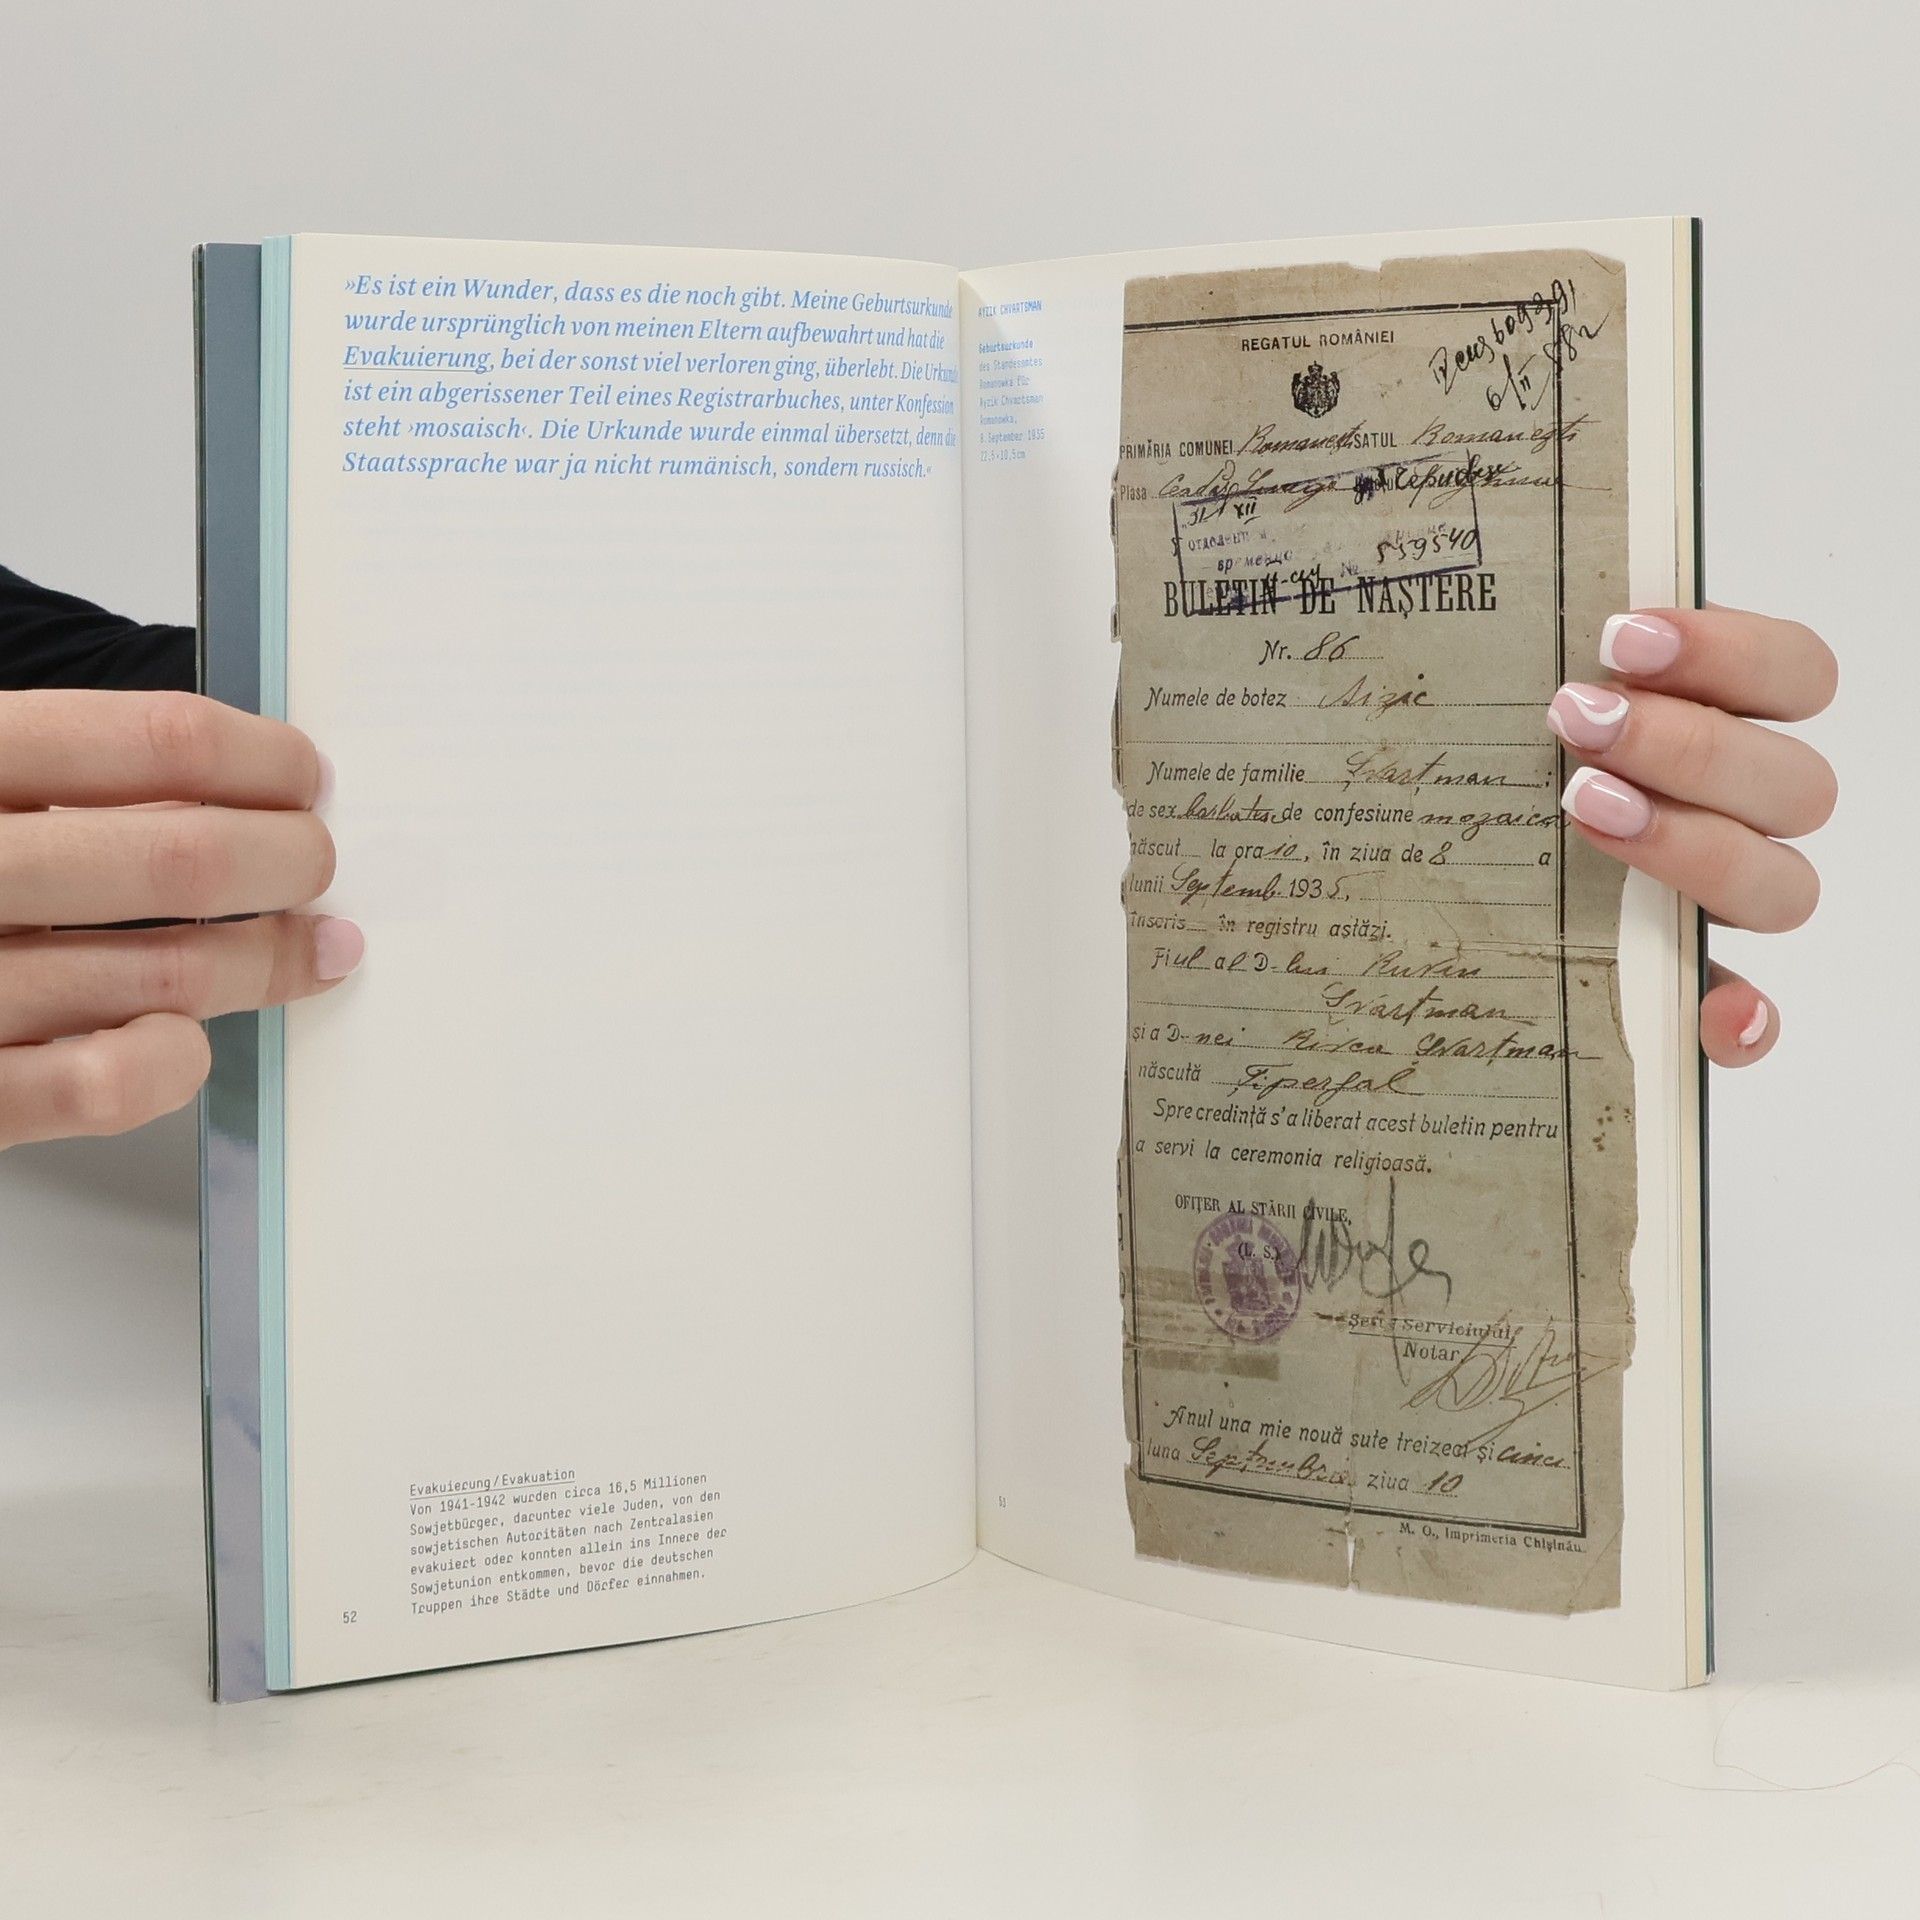 »Es ist ein Wunder, dass es die noch gibt. Meine Geburtsurkunde
wurde ursprünglich von meinen Eltern aufbewahrt und hat die
Evakuierung, bei der sonst viel verloren ging, überlebt. Die Urkunde
ist ein abgerissener Teil eines Registrarbuches, unter Konfession
steht ›mosaisch‹. Die Urkunde wurde einmal übersetzt, denn die
Staatssprache war ja nicht rumänisch, sondern russisch.«
Evakuierung/Evakuation
Von 1941-1942 wurden circa 16,5 Millionen
Sowjetbürger, darunter viele Juden, von den
sowjetischen Autoritäten nach Zentralasien
evakuiert oder konnten allein ins Innere der
Sowjetunion entkommen, bevor die deutschen
Truppen ihre Städte und Dörfer einnahmen.
52
AYZIK CHVARTSMAN
Geburtsurkunde
des Standesamtes
Romanowka für
Ayzik Chvartsman
Romanowka,
8. September 1935
22,5×10,5cm
53
REGATUL ROMÂNIEI
6/II 82
PRIMĂRIA COMUNEI Romanești SATUL Romanești
Plasa
31 XII
№ 559540
BULETIN DE NAȘTERE
Nr. 86
Numele de botez Aizic
Numele de familie Șvarțman;
de sex bărbătesc de confesiune mozaică
născut la ora 10, în ziua de 8 a
lunii Septemb. 1935,
înscris în registru astăzi.
Fiul al D-lui Ruvin
Șvarțman
și a D-nei Rivca Șvarțman
născută Țiperfal
Spre credință s'a liberat acest buletin pentru
a servi la ceremonia religioasă.
OFIȚER AL STĂRII CIVILE,
(L. S.)
Șeful Serviciului
Notar
Anul una mie nouă sute treizeci și cinci
luna Septembrie ziua 10
M. O., Imprimeria Chișinău.